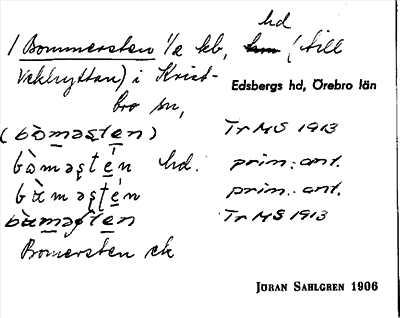 hd
1 Bommersten 1/2 kb, (till
Vekhyttan) i Krist-
bro sn,
Edsbergs hd, Örebro län
(bòməʂten) TrMS 1913
bòməʂtén hd. prim. ant.
bàməʂtén prim. ant.
bàməʂten TrMS 1913
Bomersten ek
JÖRAN SAHLGREN 1906